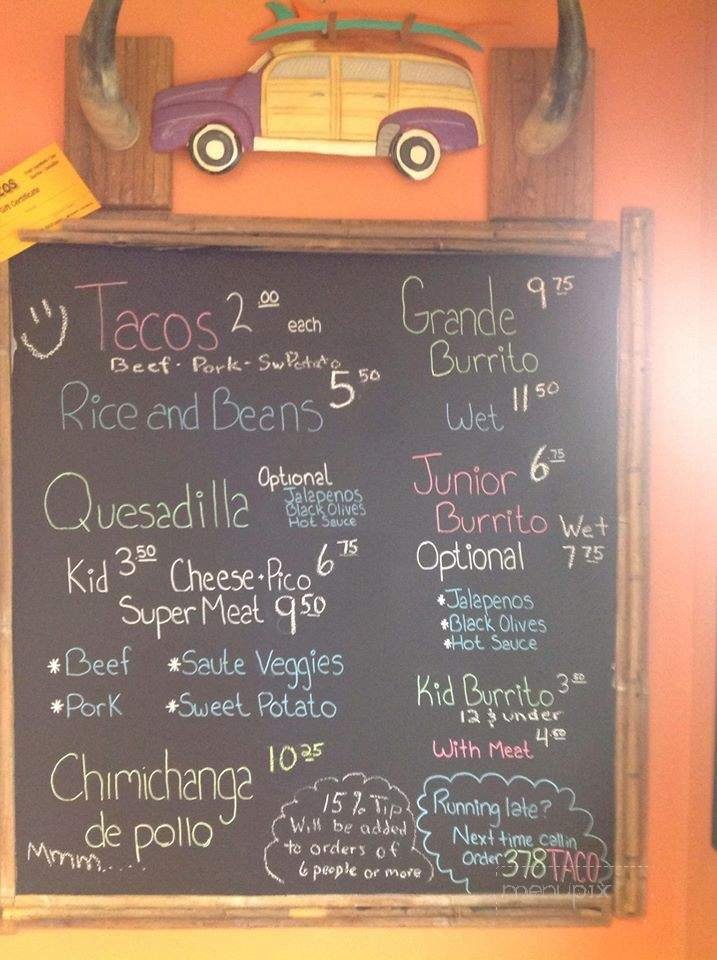 Gift Certificate
Tacos 2.00 each
Beef - Pork - Sw Potato
Rice and Beans 5 50
Quesadilla Optional
Jalapenos
Black Olives
Hot Sauce
Kid 3.50 Cheese + Pico 6 75
Super Meat 9 50
*Beef *Saute Veggies
*Pork *Sweet Potato
Chimichanga 10 25
de pollo
Mmm.....
15% Tip
Will be added
to orders of
6 people or more
Grande 9 75
Burrito
Wet 11 50
Junior 6.75
Burrito Wet
Optional 7 75
*Jalapenos
*Black Olives
*Hot Sauce
Kid Burrito 3 50
12 & under
With Meat 4.50
Running late?
Next time call in
Order 378 TACO
menupix